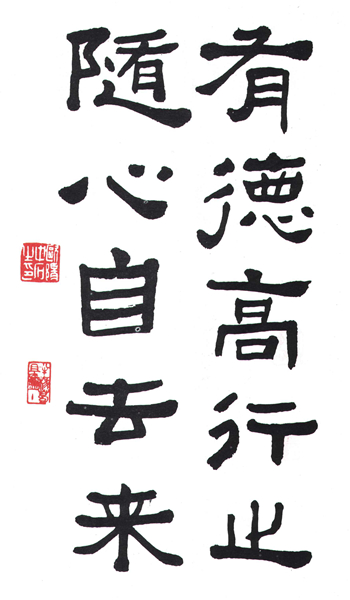 有德高行止
隨心自去来